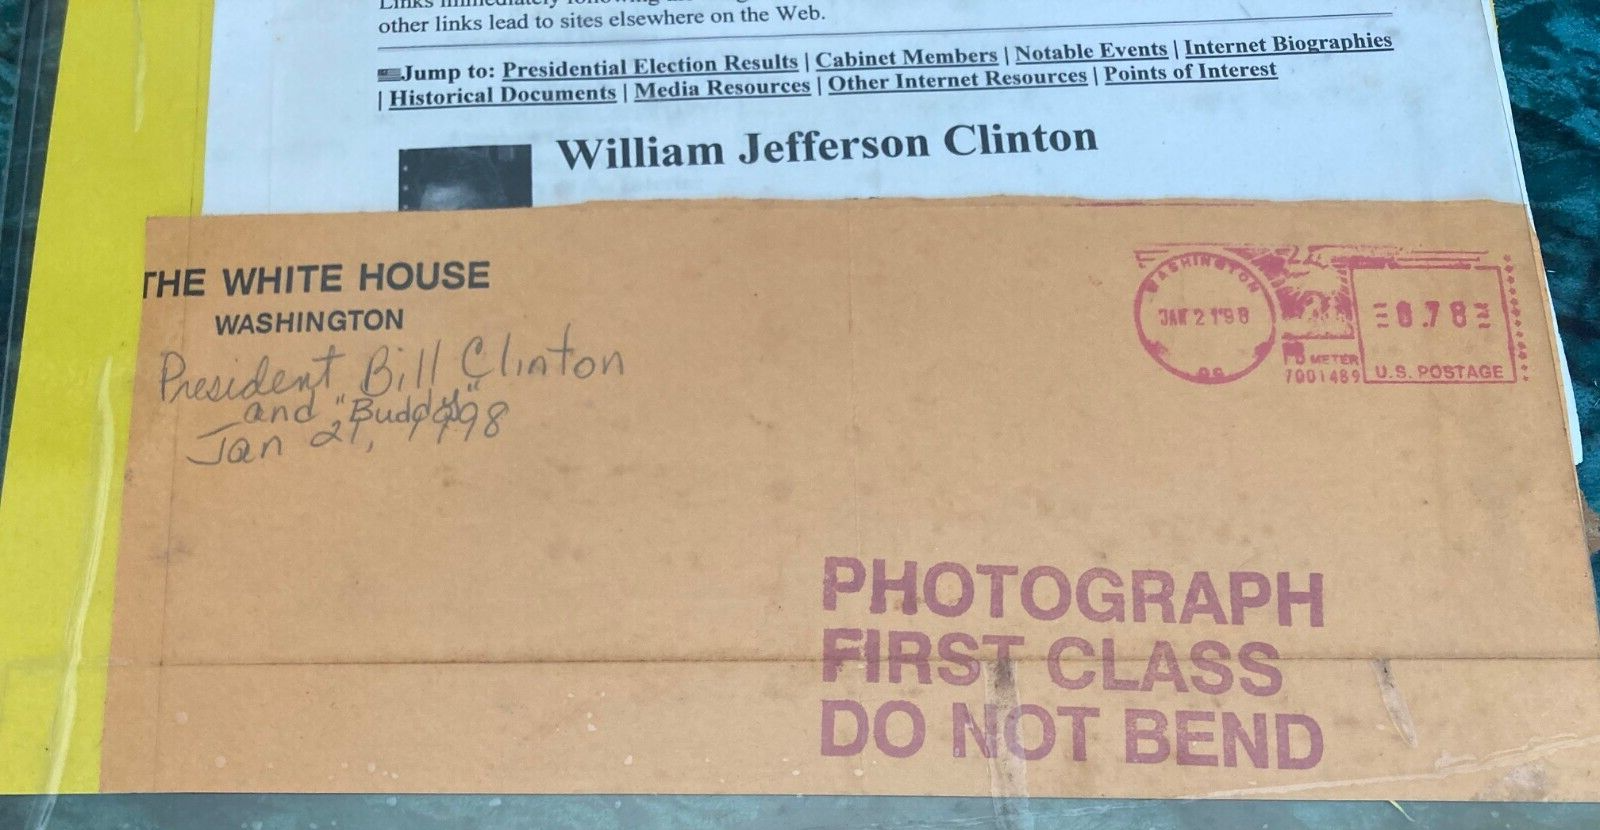 other links lead to sites elsewhere on the Web.
Jump to: Presidential Election Results | Cabinet Members | Notable Events | Internet Biographies
| Historical Documents | Media Resources | Other Internet Resources | Points of Interest
William Jefferson Clinton
THE WHITE HOUSE
WASHINGTON
President Bill Clinton
and "Buddy"
Jan 21, 1998
WASHINGTON
JAN 21'98
PB METER
7001489
0.78
U.S. POSTAGE
PHOTOGRAPH
FIRST CLASS
DO NOT BEND